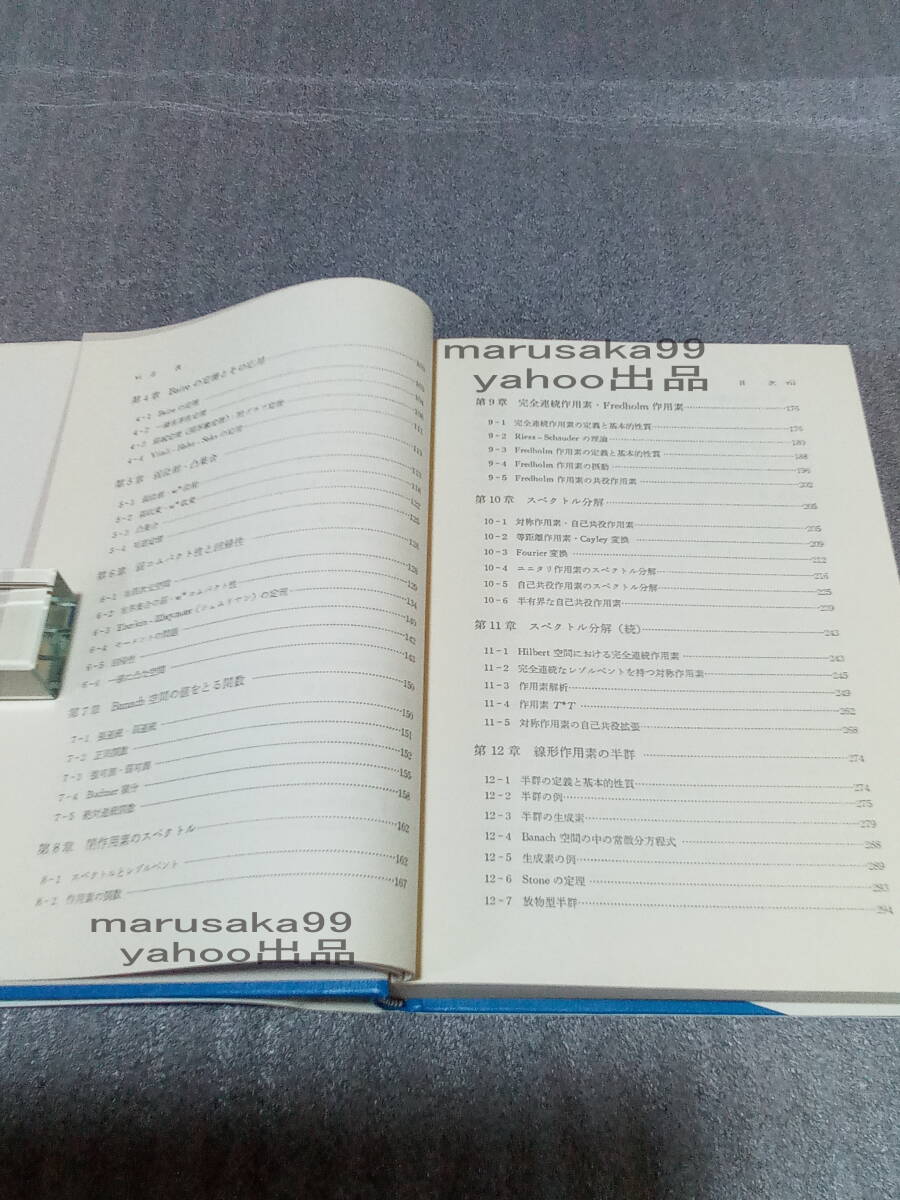 vi 目 次
第4章 Baire の定理とその応用 103
4-1 Baire の定理 103
4-2 一様有界性定理 104
4-3 値域定理(開写像定理)・閉グラフ定理 106
4-4 Vitali-Hahn-Saks の定理 111
第5章 弱位相・凸集合
5-1 弱位相・w*位相
5-2 弱収束・w*収束 122
5-3 凸集合 125
5-4
第6章 弱コンパクト性と回帰性 128
6-1 有限次元空間 128
6-2 有界集合の弱・w*コンパクト性 129
6-3 Eberlein-Šmulian(シュムリヤン)の定理 134
6-4 モーメントの問題 140
6-5 回帰性 142
6-6 一様に凸な空間 145
第7章 Banach 空間の値をとる関数 150
7-1 強連続・弱連続 150
7-2 正則関数 151
7-3 強可測・弱可測 152
7-4 Bochner 積分 155
7-5 絶対連続関数 158
第8章 閉作用素のスペクトル 162
8-1 スペクトルとレゾルベント 162
8-2 作用素の関数 167
marusaka99
yahoo出品
marusaka99
yahoo出品
目 次 vii
第9章 完全連続作用素・Fredholm 作用素 176
9-1 完全連続作用素の定義と基本的性質 176
9-2 Riesz-Schauder の理論 180
9-3 Fredholm 作用素の定義と基本的性質 188
9-4 Fredholm 作用素の摂動 196
9-5 Fredholm 作用素の共役作用素 202
第10章 スペクトル分解 205
10-1 対称作用素・自己共役作用素 205
10-2 等距離作用素・Cayley 変換 209
10-3 Fourier 変換 212
10-4 ユニタリ作用素のスペクトル分解 216
10-5 自己共役作用素のスペクトル分解 225
10-6 半有界な自己共役作用素 239
第11章 スペクトル分解(続) 243
11-1 Hilbert 空間における完全連続作用素 243
11-2 完全連続なレゾルベントを持つ対称作用素 245
11-3 作用素解析 249
11-4 作用素 T*T 262
11-5 対称作用素の自己共役拡張 268
第12章 線形作用素の半群 274
12-1 半群の定義と基本的性質 274
12-2 半群の例 275
12-3 半群の生成素 279
12-4 Banach 空間の中の常微分方程式 288
12-5 生成素の例 289
12-6 Stone の定理 293
12-7 放物型半群 294